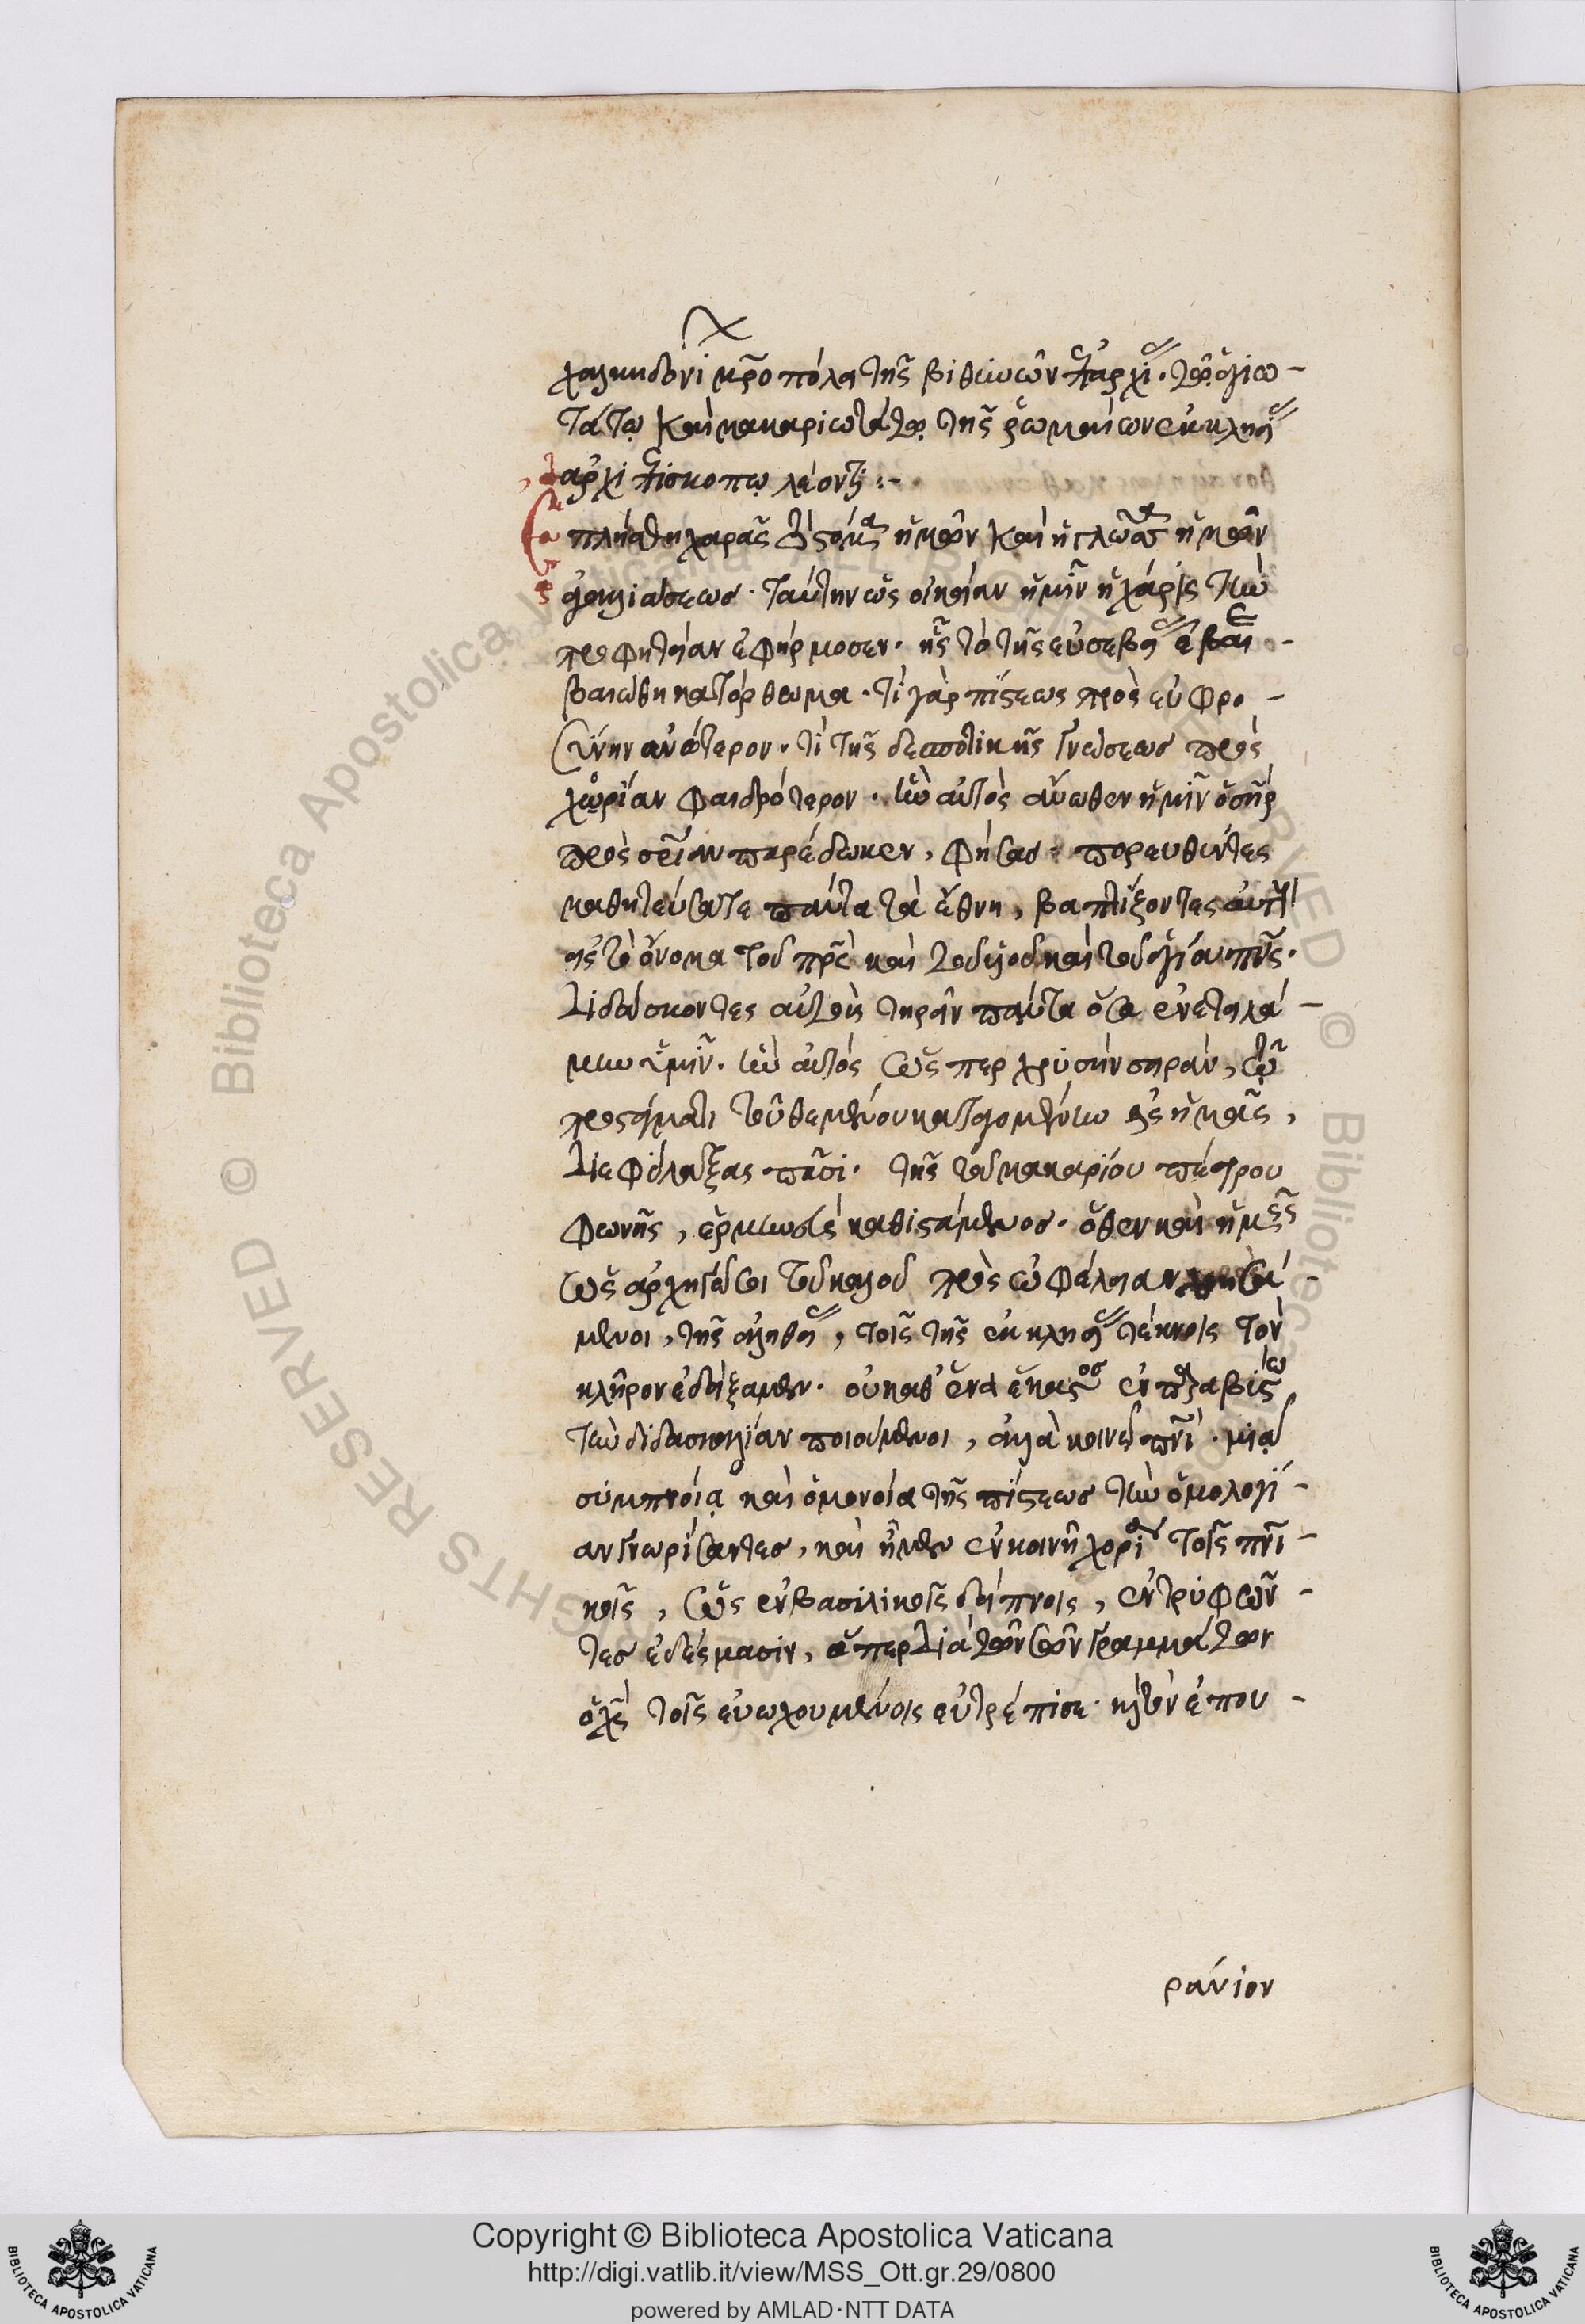 χαλκηδόνι μ̅ρ̅οπόλει τῆς βιθυνῶν ἐπαρχί. τῷ ἁγιω-
τάτῳ καὶ μακαριωτάτῳ τῆς ῥωμαίων ἐκκλησ
ἀρχιεπισκόπῳ λέοντι:-
ἐπλήσθη χαρᾶς τὸ στόμα ἡμῶν καὶ ἡ γλῶσσα ἡμῶν
ἀγαλλιάσεως. ταύτην ὡς οἰκείαν ἡμῖν ἡ χάρις τὴν
προφητείαν ἐφήρμοσεν. ἧς τὸ τῆς εὐσεβεί ἐβε
βαιώθη κατόρθωμα. τί γὰρ πίστεως πρὸς εὐφρο-
σύνην ἀνώτερον. τί τῆς δεσποτικῆς γνώσεως πρὸς
χορείαν φαιδρότερον. ἣν αὐτὸς ἄνωθεν ἡμῖν ὁ σ̅η̅ρ
πρὸς σρίαν παρέδωκεν, φήσας· πορευθέντες
μαθητεύσατε πάντα τὰ ἔθνη, βαπτίζοντες αὐτοὺς
εἰς τὸ ὄνομα τοῦ π̅ρ̅ς καὶ τοῦ υἱοῦ καὶ τοῦ ἁγίου π̅ν̅ς.
διδάσκοντες αὐτοὺς τηρεῖν πάντα ὅσα ἐνετειλά-
μην ὑμῖν. ἣν αὐτὸς ὥσπερ χρυσῆν σειρὰν, τῷ
προστάγματι τοῦ θεμένου καταγομένην εἰς ἡμᾶς,
διεφύλαξας πᾶσι. τῆς τοῦ μακαρίου πέτρου
φωνῆς, ἑρμηνεὺς καθιστάμενος. ὅθεν καὶ ἡμεῖς
ὡς ἀρχηγῷ σοι τοῦ καλοῦ πρὸς ὠφέλειαν χρησά-
μενοι, τῆς ἀληθεί, τοῖς τῆς ἐκκλησ τέκνοις τὸν
κλῆρον ἐδείξαμεν. οὐ καθ' ἕνα ἕκαστος ἐν παραβύστῳ
τὴν διδασκαλίαν ποιούμενοι, ἀλλὰ κοινῷ π̅ν̅ι. μιᾷ
συμπνοίᾳ καὶ ὁμονοίᾳ τῆς πίστεως τὴν ὁμολογί-
αν γνωρίσαντες, καὶ ἦμεν ἐν κοινῇ χορεί τοῖς π̅ν̅ι-
κοῖς, ὡς ἐν βασιλικοῖς δείπνοις, ἐντρυφῶν-
τες ἐδέσμασιν, ἅπερ διὰ τῶν σῶν γραμμάτων
ὁ χ̅ς τοῖς εὐωχουμένοις εὐτρέπισε. καὶ τὸν ἐπου-
ράνιον
Copyright © Biblioteca Apostolica Vaticana
http://digi.vatlib.it/view/MSS_Ott.gr.29/0800
powered by AMLAD·NTT DATA